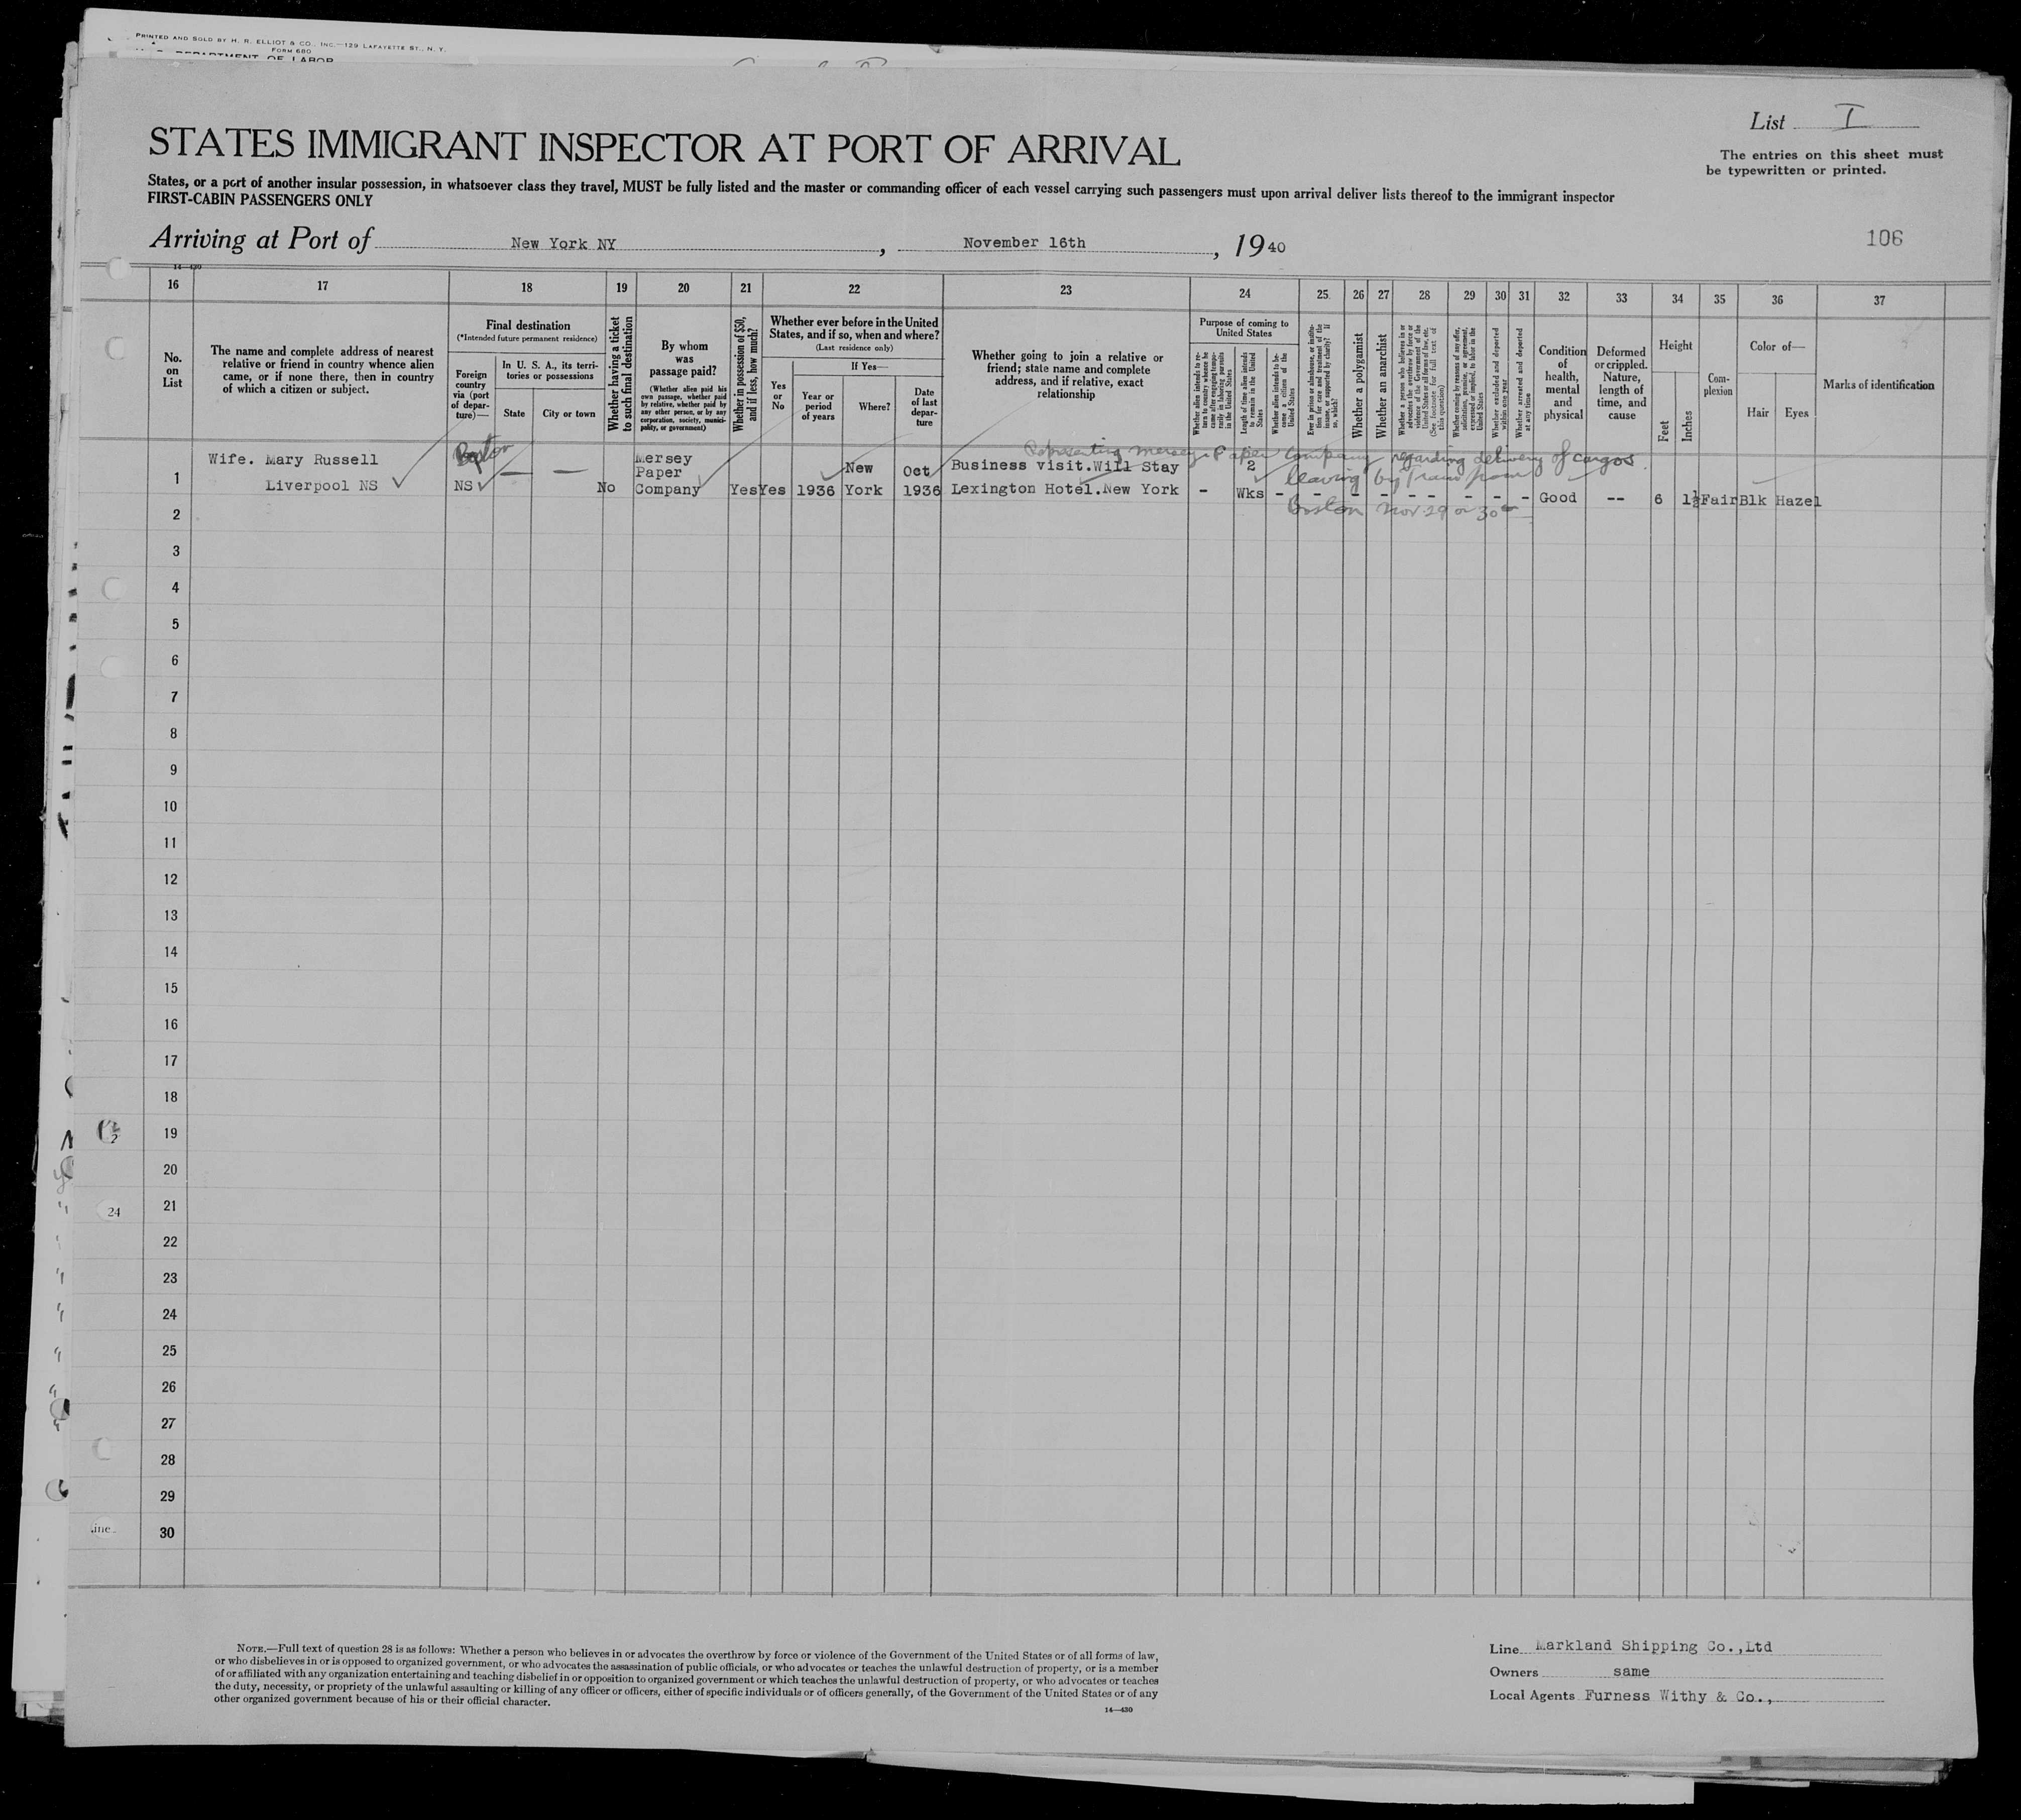 PRINTED AND SOLD BY H. R. ELLIOT & CO., INC.—129 LAFAYETTE ST., N. Y.
FORM 680
DEPARTMENT OF LABOR
List I
STATES IMMIGRANT INSPECTOR AT PORT OF ARRIVAL
The entries on this sheet must
be typewritten or printed.
States, or a port of another insular possession, in whatsoever class they travel, MUST be fully listed and the master or commanding officer of each vessel carrying such passengers must upon arrival deliver lists thereof to the immigrant inspector
FIRST-CABIN PASSENGERS ONLY
Arriving at Port of New York NY, November 16th, 1940
106
14—430
16 17 18 19 20 21 22 23 24 25 26 27 28 29 30 31 32 33 34 35 36 37
No.
on
List
The name and complete address of nearest
relative or friend in country whence alien
came, or if none there, then in country
of which a citizen or subject.
Final destination
(*Intended future permanent residence)
Foreign
country
via (port
of depar-
ture)—
In U. S. A., its terri-
tories or possessions
State
City or town
Whether having a ticket
to such final destination
By whom
was
passage paid?
(Whether alien paid his
own passage, whether paid
by relative, whether paid by
any other person, or by any
corporation, society, munici-
pality, or government)
Whether in possession of $50,
and if less, how much?
Whether ever before in the United
States, and if so, when and where?
(Last residence only)
Yes
or
No
If Yes—
Year or
period
of years
Where?
Date
of last
depar-
ture
Whether going to join a relative or
friend; state name and complete
address, and if relative, exact
relationship
Purpose of coming to
United States
Whether alien intends to re-
turn to country whence he
came after engaging tempo-
rarily in laboring pursuits
in the United States
Length of time alien intends
to remain in the United
States
Whether alien intends to be-
come a citizen of the
United States
Ever in prison or almshouse, or institu-
tion for care and treatment of the
insane, or supported by charity? If
so, which?
Whether a polygamist
Whether an anarchist
Whether a person who believes in or
advocates the overthrow by force or
violence of the Government of the
United States or all forms of law, etc.
(See footnote for full text of
this question)
Whether coming by reason of any offer,
solicitation, promise, or agreement,
expressed or implied, to labor in the
United States
Whether excluded and deported
within one year
Whether arrested and deported
at any time
Condition
of
health,
mental
and
physical
Deformed
or crippled.
Nature,
length of
time, and
cause
Height
Feet
Inches
Com-
plexion
Color of—
Hair
Eyes
Marks of identification
Representing Mersey Paper Company regarding delivery of cargos.
Wife. Mary Russell Boston — — Mersey Paper New Oct Business visit. Will Stay 2 leaving by Train from
1 Liverpool NS NS No Company Yes Yes 1936 York 1936 Lexington Hotel. New York - Wks - - - - - - - - - Good -- 6 1½ Fair Blk Hazel
2 Boston Nov 29 or 30
3
4
5
6
7
8
9
10
11
12
13
14
15
16
17
18
19
20
24 21
22
23
24
25
26
27
28
29
30
NOTE.—Full text of question 28 is as follows: Whether a person who believes in or advocates the overthrow by force or violence of the Government of the United States or of all forms of law,
or who disbelieves in or is opposed to organized government, or who advocates the assassination of public officials, or who advocates or teaches the unlawful destruction of property, or is a member
of or affiliated with any organization entertaining and teaching disbelief in or opposition to organized government or which teaches the unlawful destruction of property, or who advocates or teaches
the duty, necessity, or propriety of the unlawful assaulting or killing of any officer or officers, either of specific individuals or of officers generally, of the Government of the United States or of any
other organized government because of his or their official character.
14—430
Line Markland Shipping Co.,Ltd
Owners same
Local Agents Furness Withy & Co.,